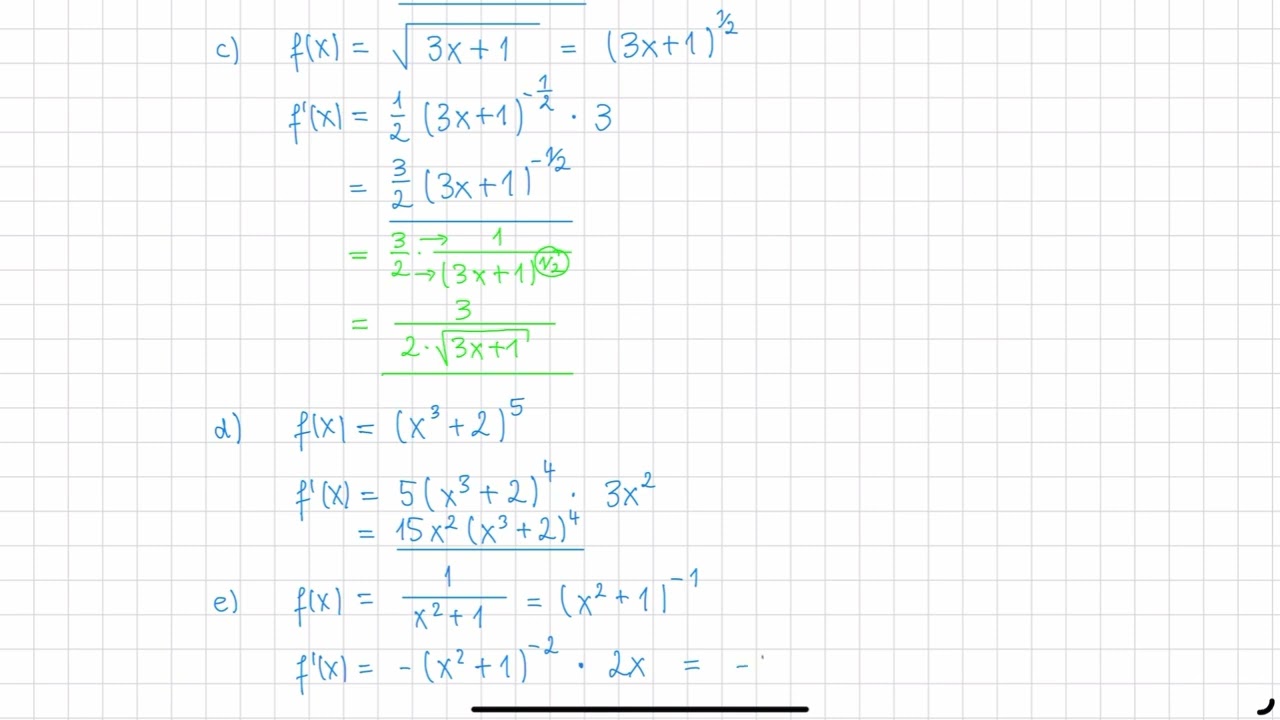 c) f(x) = √(3x+1) = (3x+1)^(1/2)
f'(x) = 1/2 (3x+1)^(-1/2) · 3
= 3/2 (3x+1)^(-1/2)
= 3/2 · → 1 / → (3x+1)^(1/2)
= 3 / (2·√(3x+1))
d) f(x) = (x³+2)⁵
f'(x) = 5(x³+2)⁴ · 3x²
= 15x²(x³+2)⁴
e) f(x) = 1/(x²+1) = (x²+1)⁻¹
f'(x) = -(x²+1)⁻² · 2x = -